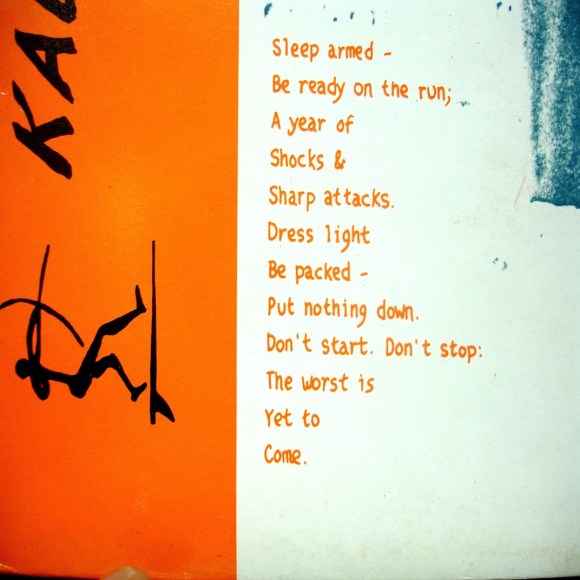 Sleep armed -
Be ready on the run;
A year of
Shocks &
Sharp attacks.
Dress light
Be packed -
Put nothing down.
Don't start. Don't stop:
The worst is
Yet to
Come.